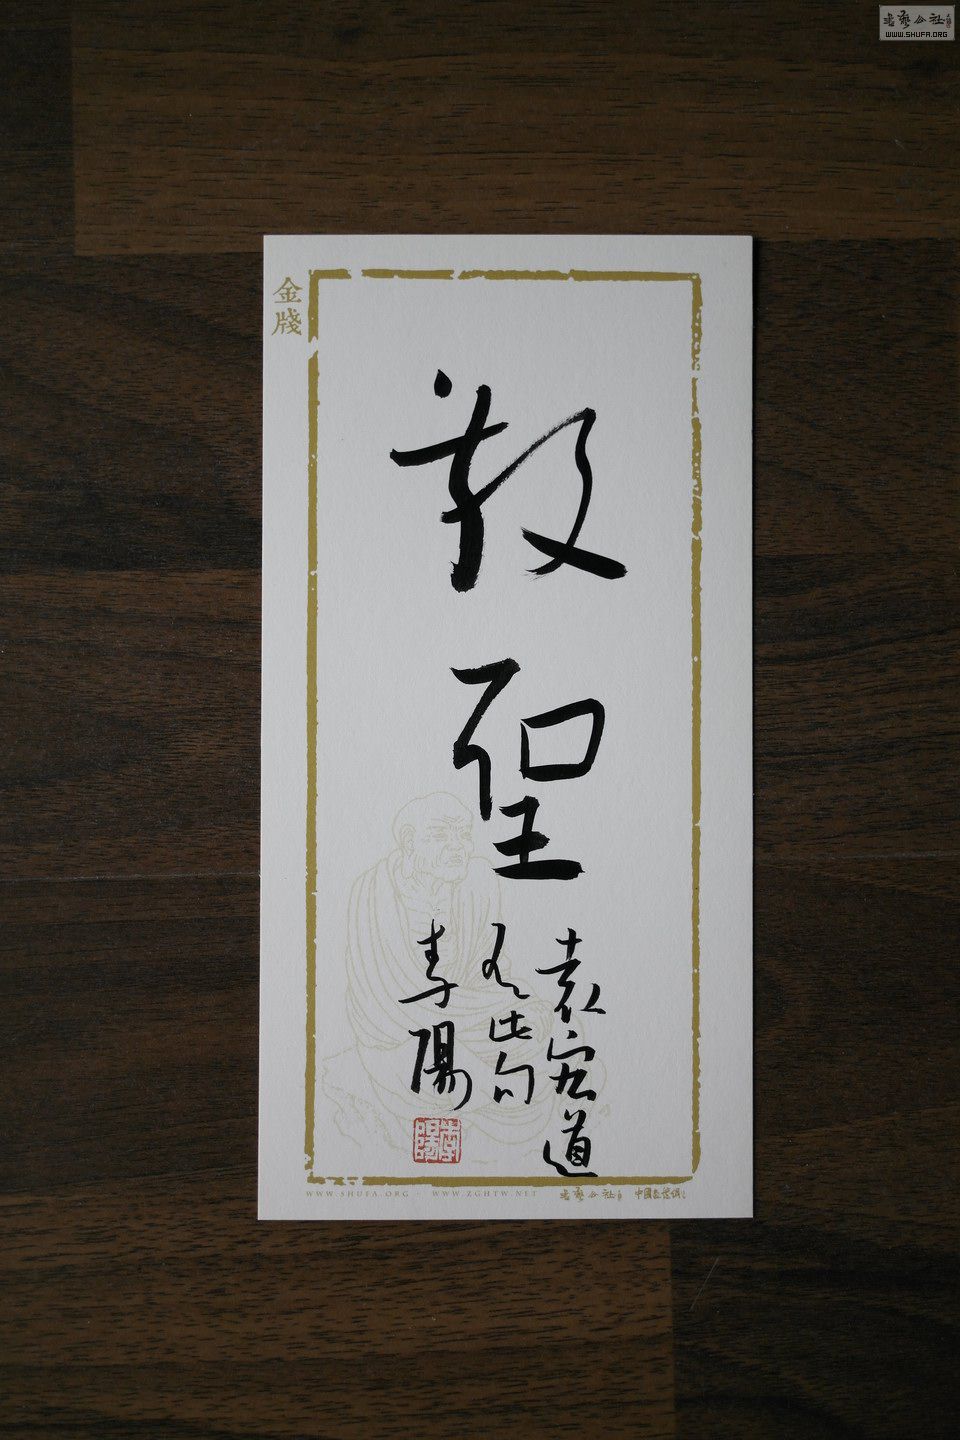 書藝公社
WWW.SHUFA.ORG
金牋
散聖
袁宏道
有此句
李陽
WWW.SHUFA.ORG - WWW.ZGHTW.NET
書藝公社